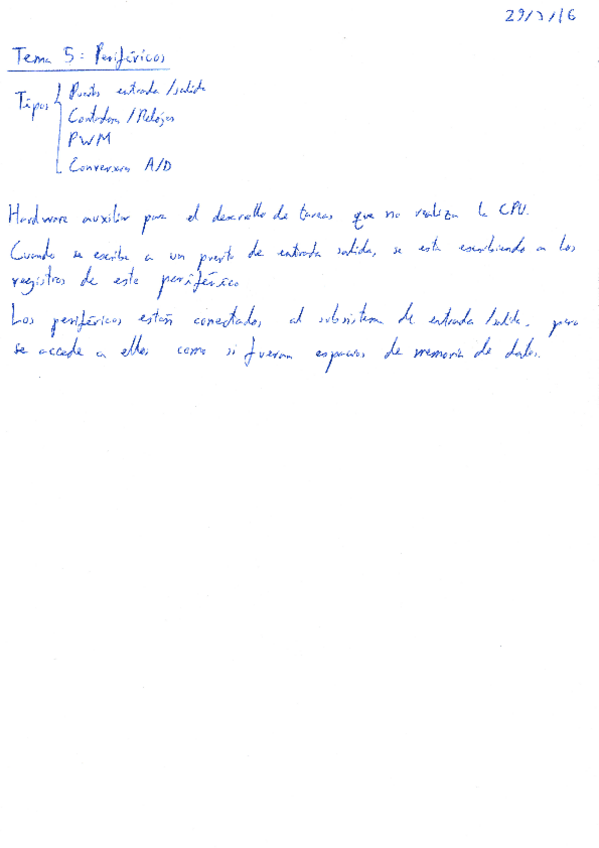 29/3/16
Tema 5: Periféricos
Tipos
Puertos entrada/salida
Contadores/Relojes
PWM
Conversores A/D
Hardware auxiliar para el desarrollo de tareas que no realiza la CPU.
Cuando se escribe a un puerto de entrada salida, se está escribiendo a los
registros de este periférico
Los periféricos están conectados al subsistema de entrada/salida, pero
se accede a ellos como si fueran espacios de memoria de datos.